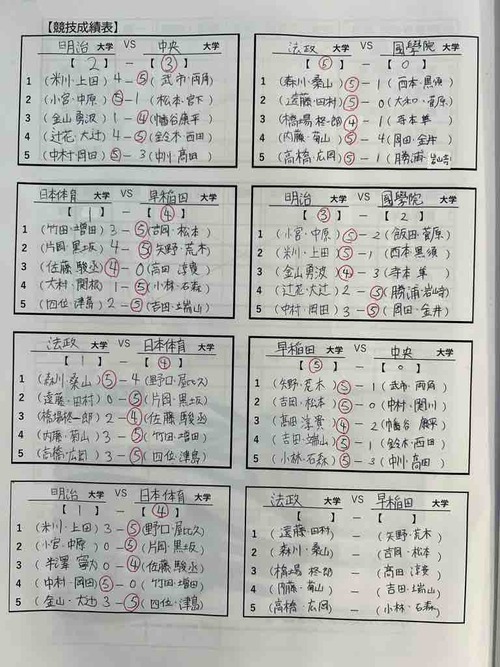 【競技成績表】
明治 大学 VS 中央 大学
【 2 】 － 【 3 】
1 (米川・上田) 4 － ⑤ (武市・両角)
2 (小宮・中原) ⑤ － 1 (松本・宮下)
3 (金山勇波) 1 － ④ (幡谷康平)
4 (辻花・大辻) 4 － ⑤ (鈴木・西田)
5 (中村・岡田) ⑤ － 3 (中川・高田)
法政 大学 VS 國學院 大学
【 ⑤ 】 － 【 0 】
1 (森川・桑山) ⑤ － 1 (西本・黒須)
2 (遠藤・田村) ⑤ － 0 (大和口・菅原)
3 (橋場柊一郎) ④ － 1 (寺本隼)
4 (内藤・菊山) ⑤ － 4 (岡田・金井)
5 (高橋・広岡) ⑤ － 1 (勝浦・岩崎)
日本体育 大学 VS 早稲田 大学
【 1 】 － 【 ④ 】
1 (竹田・増田) 3 － ⑤ (吉岡・松本)
2 (片岡・黒坂) 4 － ⑤ (矢野・荒木)
3 (佐藤駿丞) ④ － 0 (高田淳貴)
4 (大村・関根) 1 － ⑤ (小林・石森)
5 (四位・津島) 2 － ⑤ (吉田・端山)
明治 大学 VS 國學院 大学
【 ③ 】 － 【 2 】
1 (小宮・中原) ⑤ － 2 (飯田・菅原)
2 (米川・上田) ⑤ － 1 (西本・黒須)
3 (金山勇波) ④ － 3 (寺本隼)
4 (辻花・大辻) 2 － ⑤ (勝浦・岩崎)
5 (中村・岡田) 3 － ⑤ (岡田・金井)
法政 大学 VS 日本体育 大学
【 1 】 － 【 ④ 】
1 (森川・桑山) ⑤ － 4 (野口・屋比久)
2 (遠藤・田村) 0 － ⑤ (片岡・黒坂)
3 (橋場柊一郎) 2 － ④ (佐藤駿丞)
4 (内藤・菊山) 3 － ⑤ (竹田・増田)
5 (高橋・広岡) 3 － ⑤ (四位・津島)
早稲田 大学 VS 中央 大学
【 ⑤ 】 － 【 0 】
1 (矢野・荒木) ⑤ － 1 (武市・両角)
2 (吉岡・松本) ⑤ － 0 (中村・関川)
3 (高田淳貴) ④ － 2 (幡谷康平)
4 (吉田・端山) ⑤ － 1 (鈴木・西田)
5 (小林・石森) ⑤ － 3 (中川・高田)
明治 大学 VS 日本体育 大学
【 1 】 － 【 ④ 】
1 (米川・上田) 3 － ⑤ (野口・屋比久)
2 (小宮・中原) 0 － ⑤ (片岡・黒坂)
3 (米澤寧) 0 － ④ (佐藤駿丞)
4 (中村・岡田) ⑤ － 0 (竹田・増田)
5 (金山・大辻) 3 － ⑤ (四位・津島)
法政 大学 VS 早稲田 大学
【 】 － 【 】
1 (遠藤・田村) － (矢野・荒木)
2 (森川・桑山) － (吉岡・松本)
3 (橋場柊一郎) － (高田淳貴)
4 (内藤・菊山) － (吉田・端山)
5 (高橋・広岡) － (小林・石森)